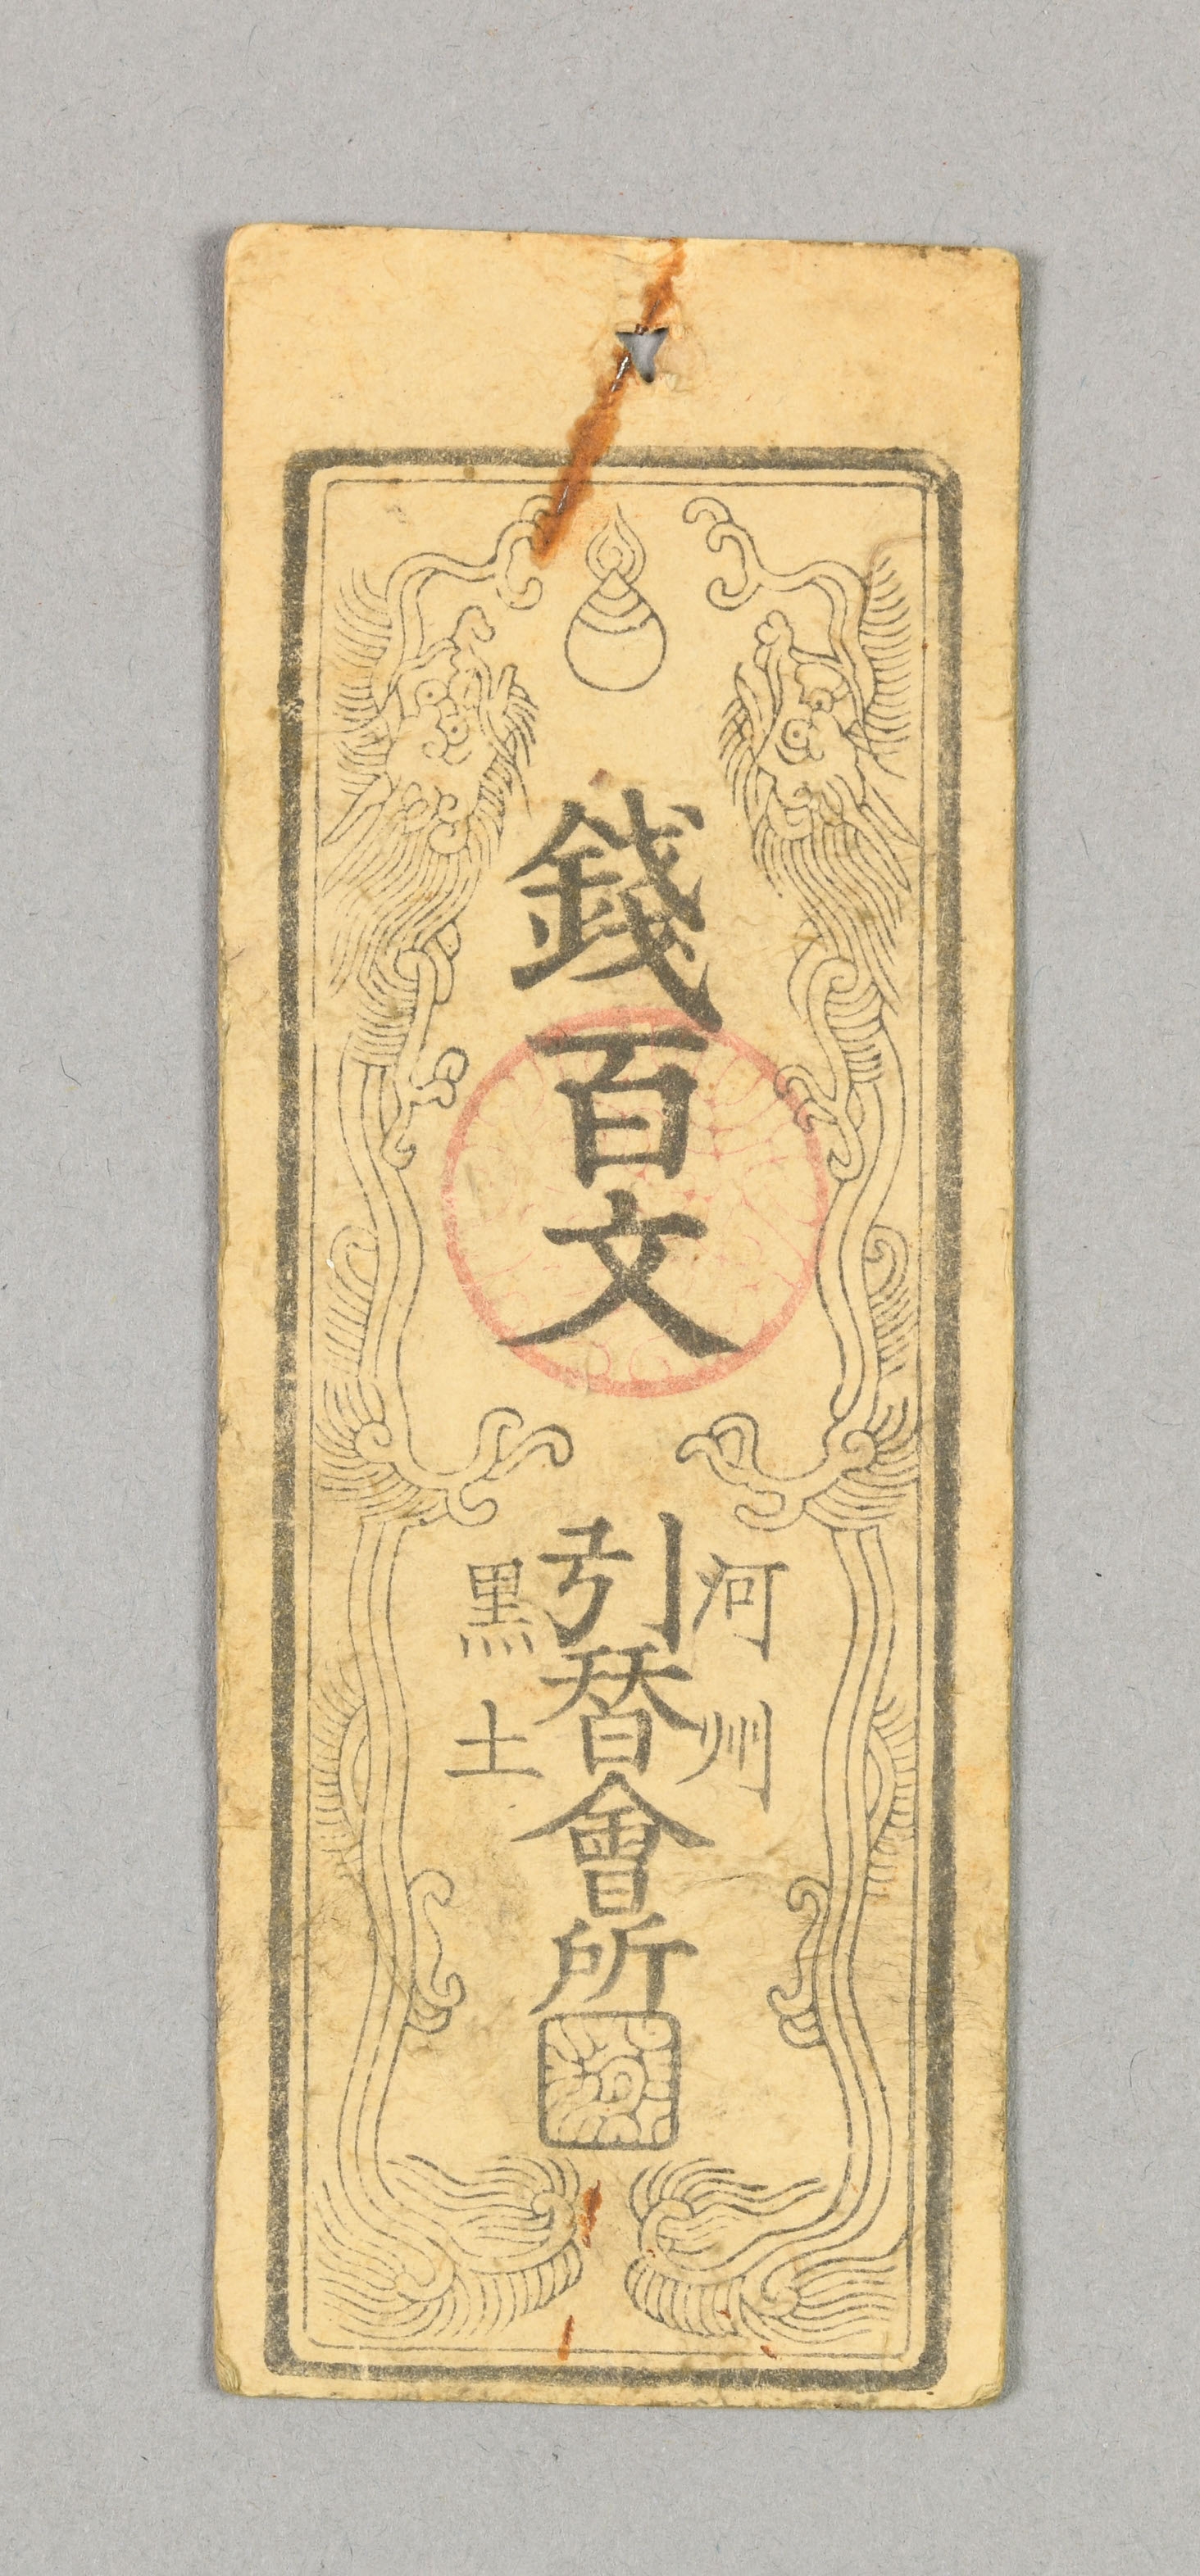 錢百文
河州
引替會所
黒土